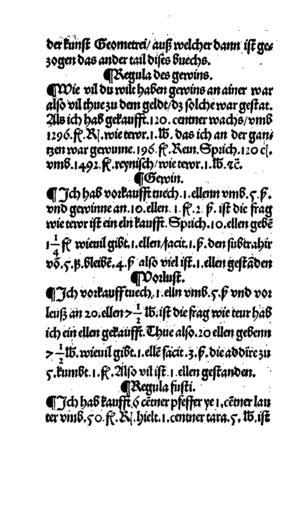 der kunst Geometrei/ auß welcher dann ist ge-
zogen das ander tail dises buechs.
¶Regula des gewins.
¶Wie vil du wilt haben gewins an ainer war
also vil thue zu dem gelde/dz solche war gestat.
Als ich hab gekaufft.120.centner wachs/vmb
1296.fl.R. wie tewr.1.lb. das ich an der gan-
tzen war gewunne.196.fl.Rein. Sprich.120 c.
vmb.1492.fl.reynisch/wie tewr.1.lb.ꝛc.
¶Gewin.
¶Ich hab vorkaufft tuech.1.ellenn vmb.5.ß.
vnd gewinne an.10.ellen.1.fl.2.ß. ist die frag
wie tewr ist ein eln kaufft. Sprich.10.ellen gebē
1 1/4 fl wieuil gibt.1.ellen/facit.1.ß.den subtrahir
vō.5.ß.bleibē.4.ß also viel ist.1.ellen gestāden
¶Vorlust.
¶Ich vorkauff tuech,1.eln vmb.5.ß vnd vor
leuß an 20.ellen 7 1/2 lb. ist die frag wie teur hab
ich ein ellen gekaufft. Thue also.20 ellen gebenn
7 1/2 lb. wieuil gibt.1.ellē facit.3.ß. die addire zu
5.kumbt.1.fl. Also vil ist.1.ellen gestanden.
¶Regula fusti.
¶Ich hab kaufft 6 cētner pfeffer ye 1.cētner lau
ter vmb.50.fl.R.hielt.1.centner tara.5.lb.ist